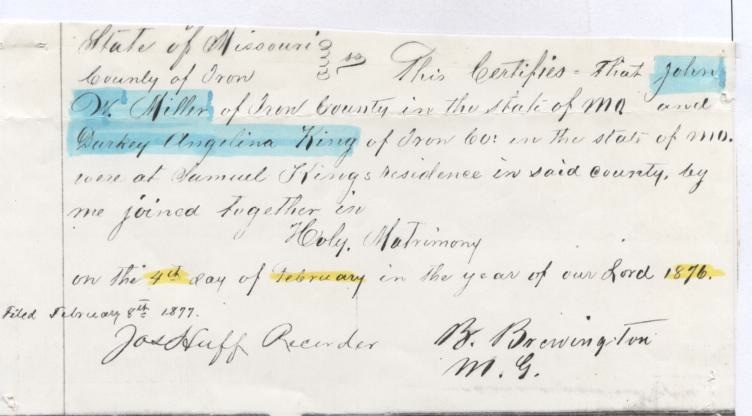 State of Missouri
County of Iron ss This Certifies - That John
W. Miller of Iron County in the state of MO. and
Darkey Angelina King of Iron Co: in the state of MO.
were at Samuel Kings residence in said county, by
me joined together in
Holy Matrimony
on the 4th day of February in the year of our Lord 1876.
Filed February 8th 1877.
Jos Huff Recorder
B. Brewington
M. G.